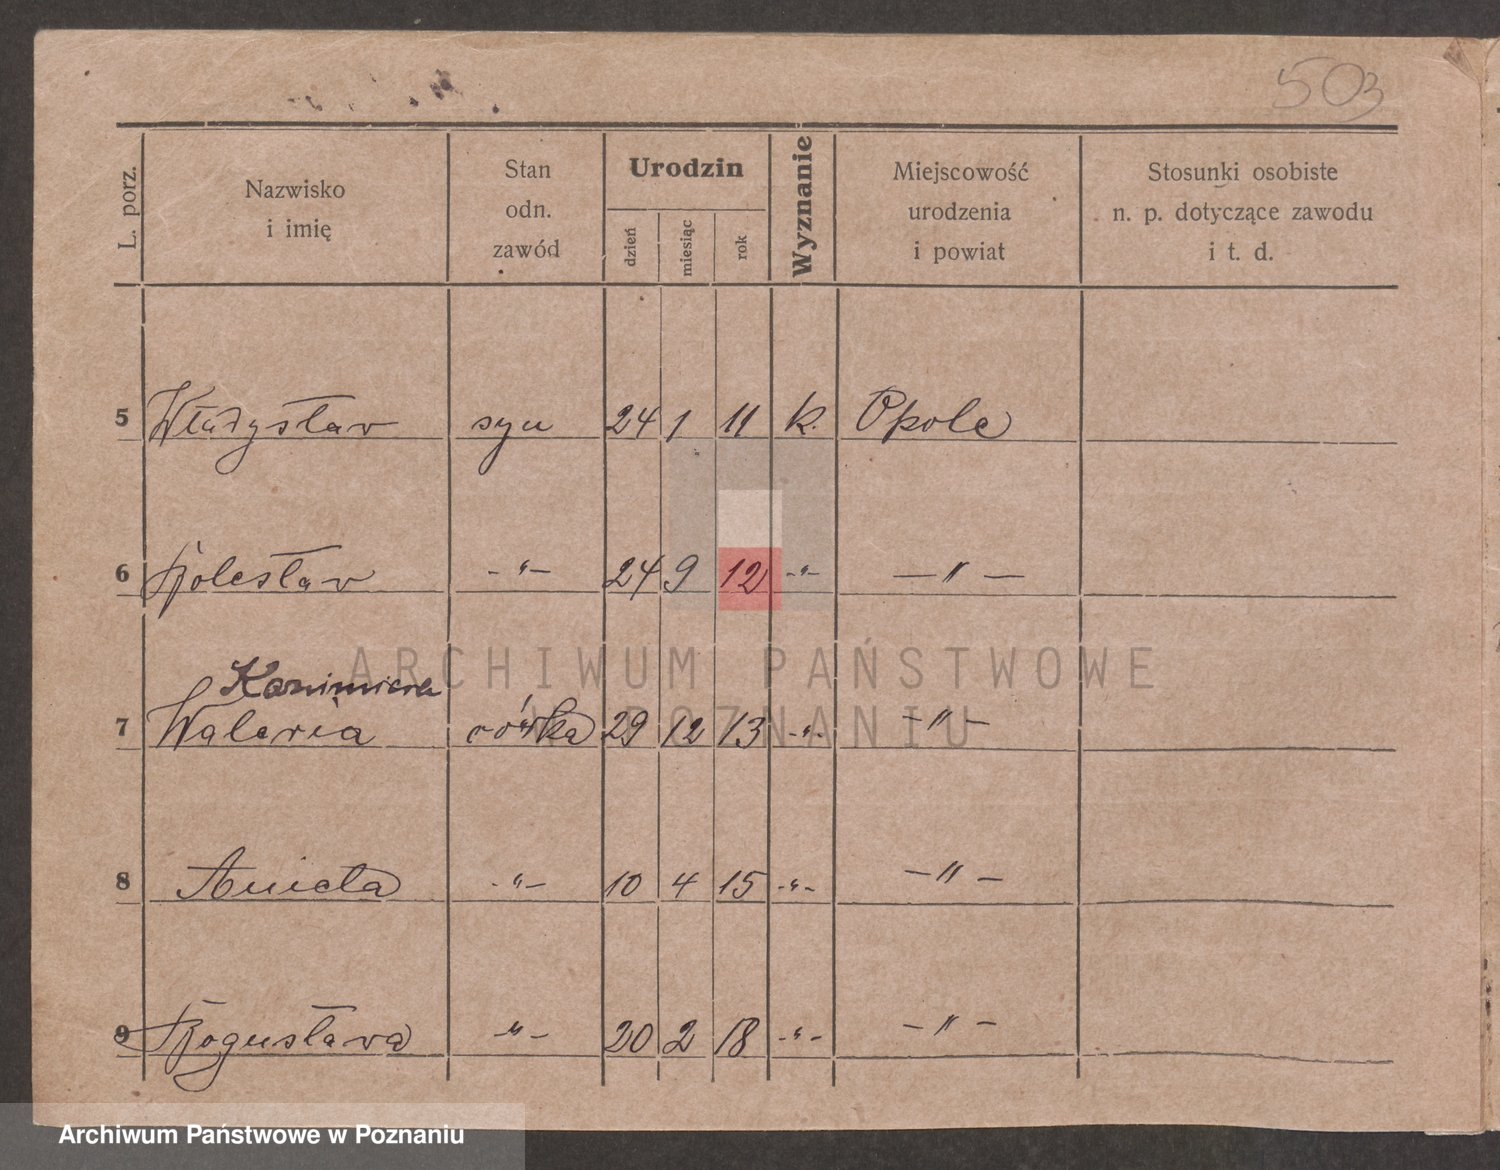 503
L. porz.
Nazwisko
i imię
Stan
odn.
zawód
Urodzin
dzień
miesiąc
rok
Wyznanie
Miejscowość
urodzenia
i powiat
Stosunki osobiste
n. p. dotyczące zawodu
i t. d.
5 Władysław syn 24 1 11 k. Opole
6 Bolesław -"- 24 9 12 -"- -"-
Kazimiera
7 Waleria córka 29 12 13 -"- -"-
8 Anieta -"- 10 4 15 -"- -"-
9 Bogusława -"- 20 2 18 -"- -"-
ARCHIWUM PAŃSTWOWE
W POZNANIU
Archiwum Państwowe w Poznaniu